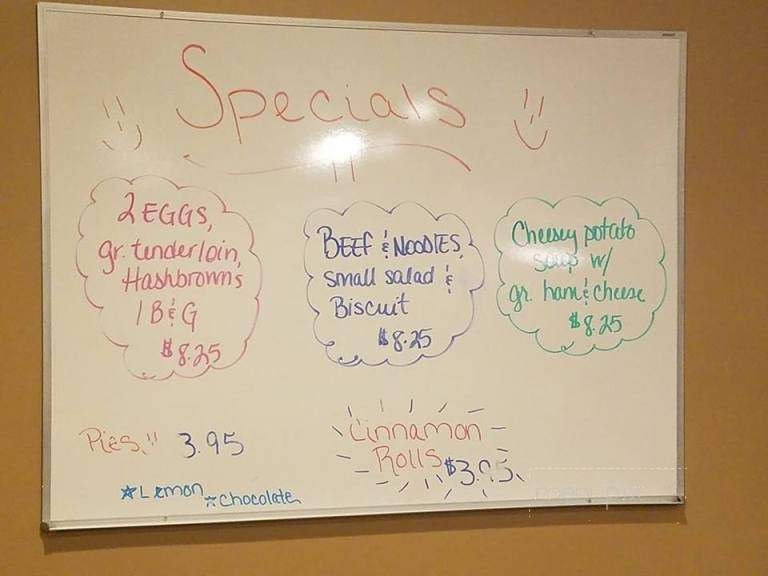 Specials
2 EGGS,
gr. tenderloin,
Hashbrowns
1 B & G
$8.25
BEEF & NOODLES,
small salad &
Biscuit
$8.25
Cheesey potato
soup w/
gr. ham & cheese
$8.25
Pies 3.95
Lemon
Chocolate
Cinnamon
Rolls